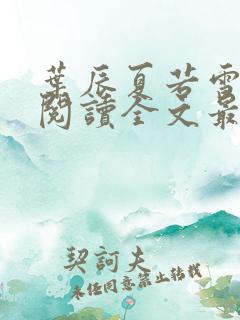 葉辰夏若雪
閱讀全文最
契訶夫
未经同意禁止转载